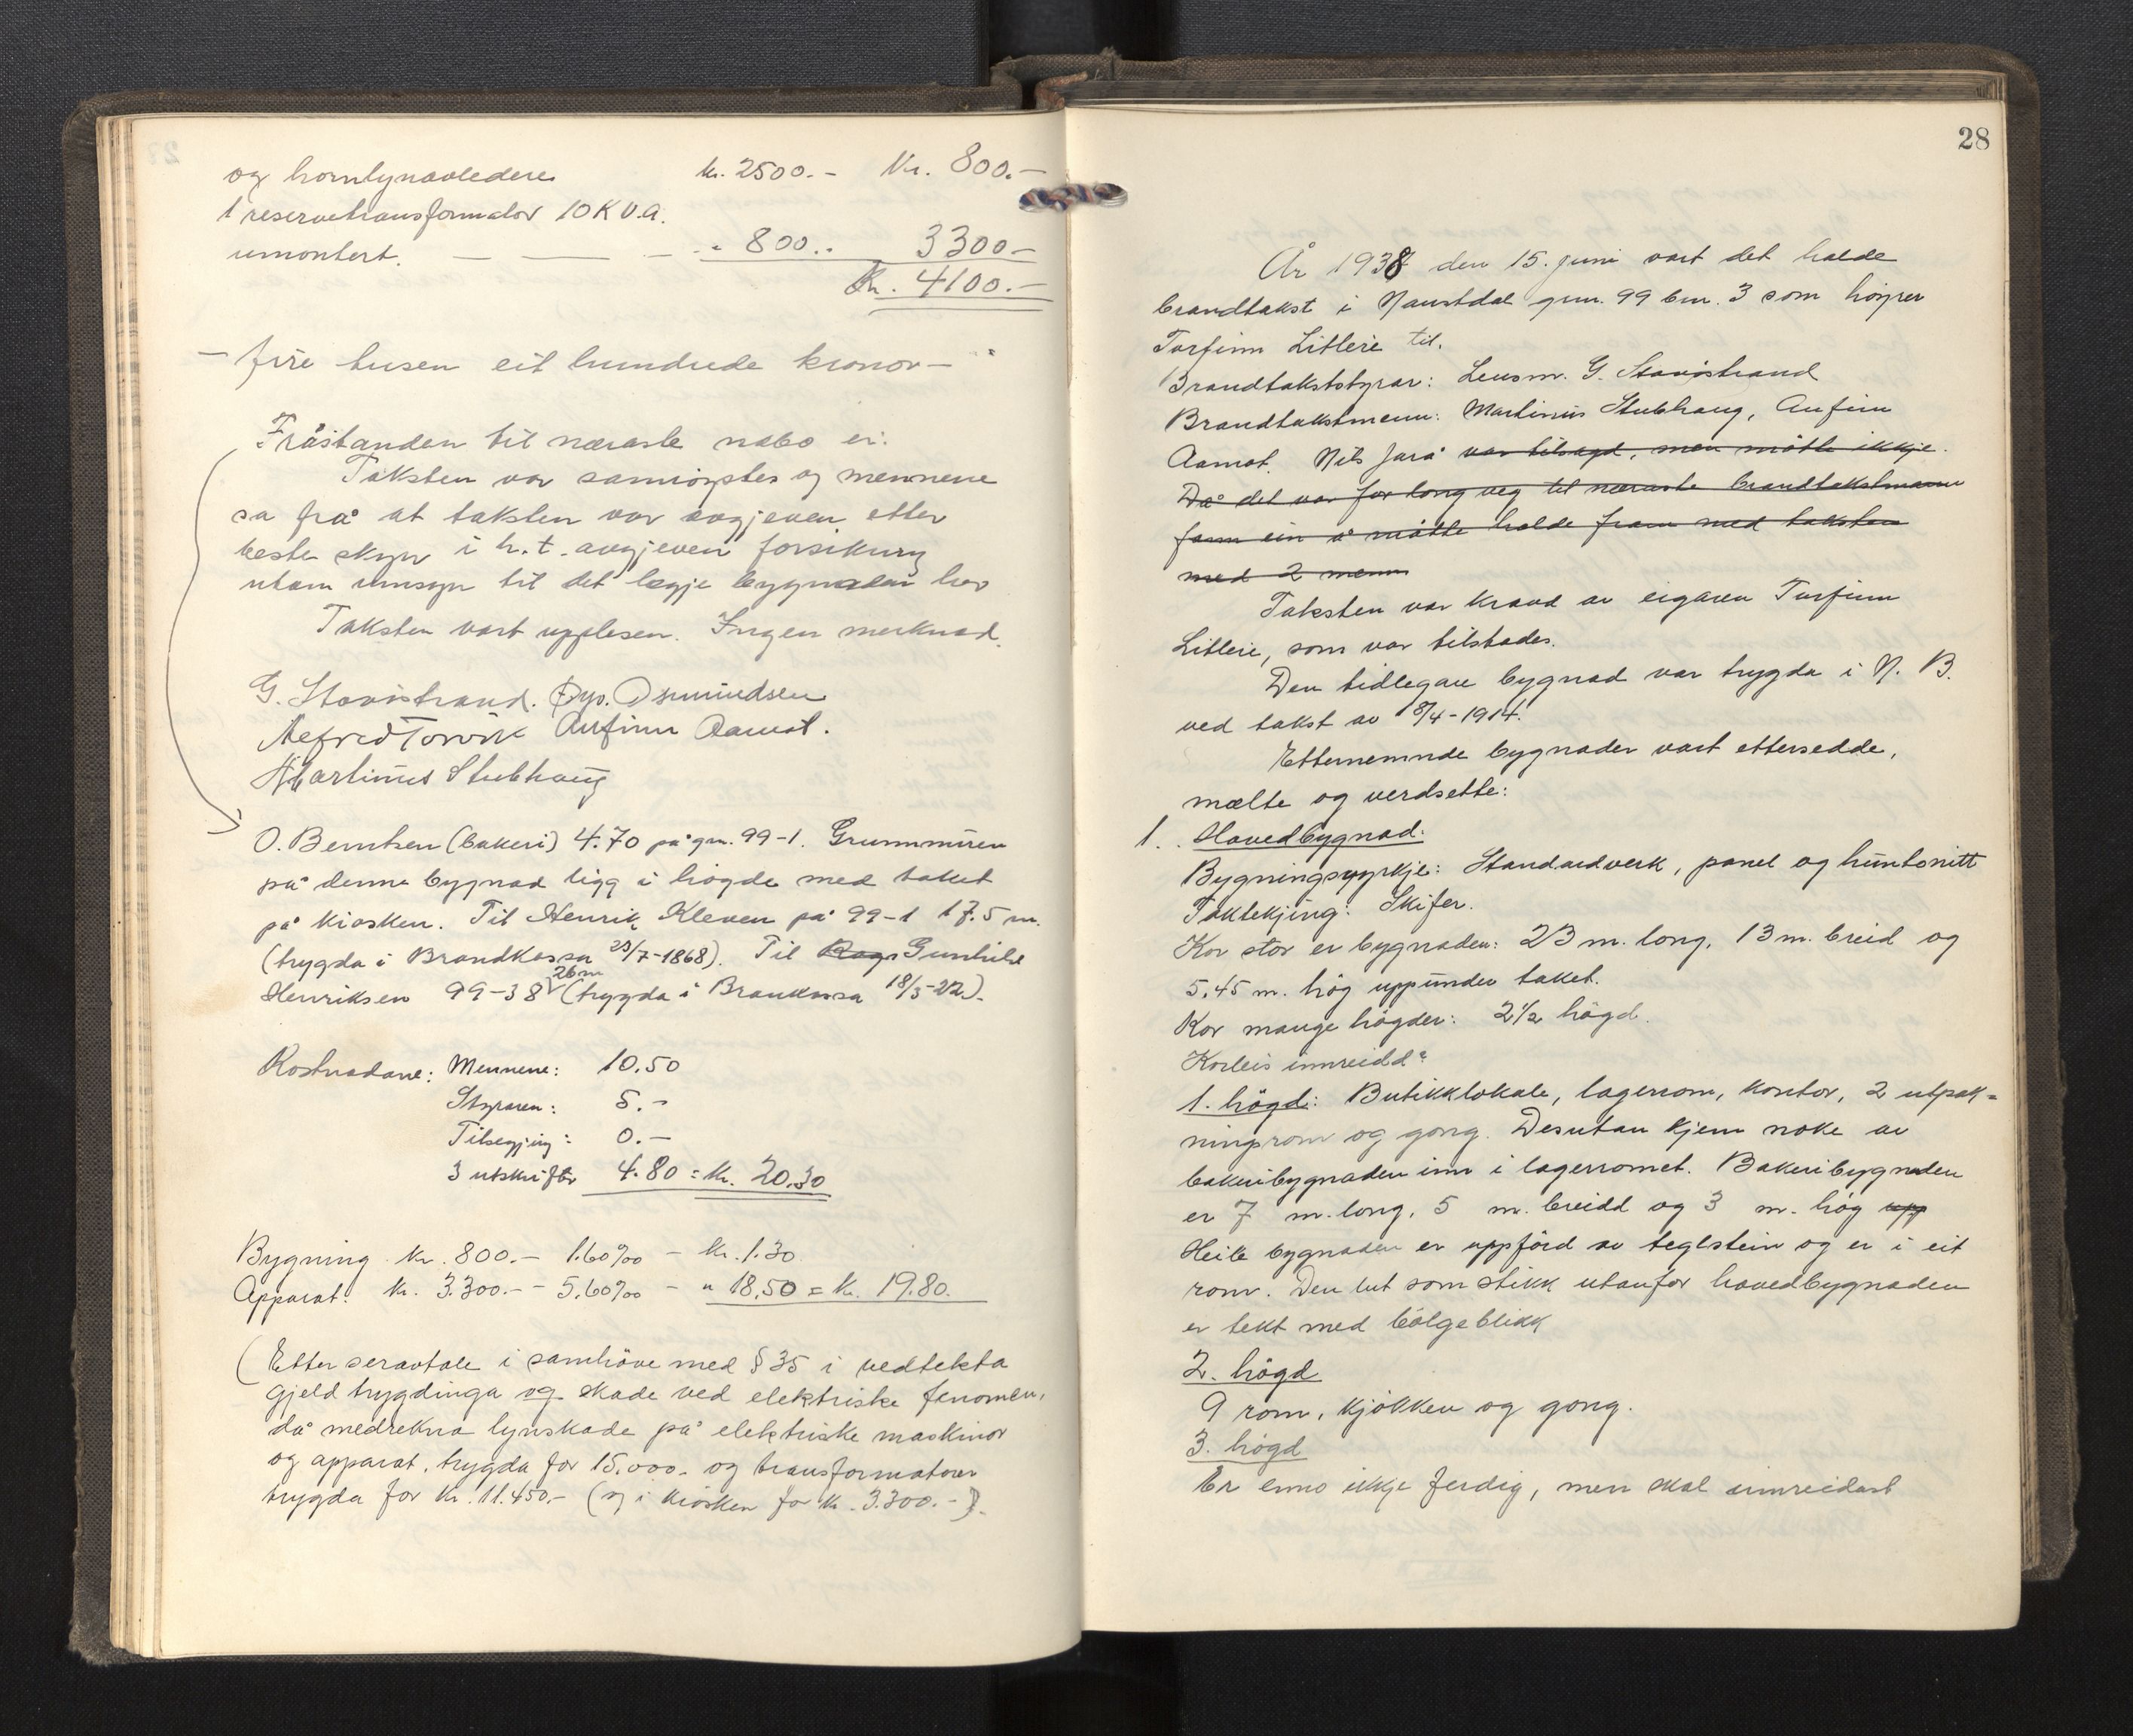 og hornlynavledere kr. 2500.- Kr. 800.-
1 reservetransformator 10 K V.a.
umontert. — — — " 800.- 3300-
Kr. 4100.-
- fire tusen eit hundrede kronor -
Fråstanden til næraste nabo er:
Taksten var samrøystes og mennene
sa frå at taksten var avgjeven etter
beste skyn i h.t. avgjeven forsikring
utan umsyn til det legje bygnaden har
Taksten vart upplesen. Ingen merknad.
G. Stavöstrand. Osmundsen
Alfred Torvik Anfinn Aamot.
Martinus Stubhaug
O. Berntsen (bakeri) 4.70 på gn. 99-1. Grunnmuren
på denne bygnad ligg i högde med taket
på kiosken. Til Henrik Kleven på 99-1 17.5 m.
(trygda i Brandkassa 23/7-1868). Til Rags Gunhild
26m
Henriksen 99-38 (trygda i Brankassa 18/3-22).
Kostnadane: Mennene: 10.50
Styraren: 5.-
Tilsegjing: 0.-
3 utskrifter 4.80 = Kr. 20.30
Bygning Kr. 800.- 1.60‰ - Kr. 1.30
Apparat: Kr. 3.300.- - 5.60‰ - " 18.50 = Kr. 19.80.
(Etter seravtale i samhöve med § 35 i vedtekta
gjeld trygdinga og skade ved elektriske fenomen,
då medrekna lynskade på elektriske maskinor
og apparat, trygda for 15.000.- og transformatorer
trygda for Kr. 11.450.- (og i kiosken for kr. 3.300.-).
28
År 1938 den 15. juni vart det halde
brandtakst i Naustdal gnr. 99 bnr. 3 som høyrer
Torfinn Litleré til.
Brandtakststyrar: Lensm. G. Stavöstrand
Brandtakstmenn: Martinus Stubhaug, Anfinn
Aamot. Nils Jarå var tilsagd, men mötte ikkje.
Då det var for long veg til næraste brandtakstmann
fann ein å måtte halde fram med taksten
med 2 menn
Taksten var kravd av eigaren Torfinn
Litlere, som var tilstades.
Den tidlegare bygnad var trygda i N. B.
ved takst av 18/4-1914.
Etternemnde bygnader vart ettersedde,
mælte og verdsette:
1. Hovedbygnad:
Bygningsyrkje: Standardverk, panel og huntonitt
Taktekjing: Skifer.
Kor stor er bygnaden: 23 m. long, 13 m. breid og
5.45 m. hög uppunder taket.
Kor mange högder: 2½ högd.
Korleis innreidd?
1. högd: Butikklokale, lagerrom, kontor, 2 utpak=
ningsrom og gong. Desutan kjem noke av
bakeribygnaden inn i lagerromet. Bakeribygnaden
er 7 m. long, 5 m. breidd og 3 m. hög upp
Heile bygnaden er uppförd av teglstein og er i eit
rom. Den lut som stikk utanfor hovedbygnaden
er tekt med bölgeblikk
2. högd
9 rom, kjökken og gong.
3. högd
Er enno ikkje ferdig, men skal innreidast